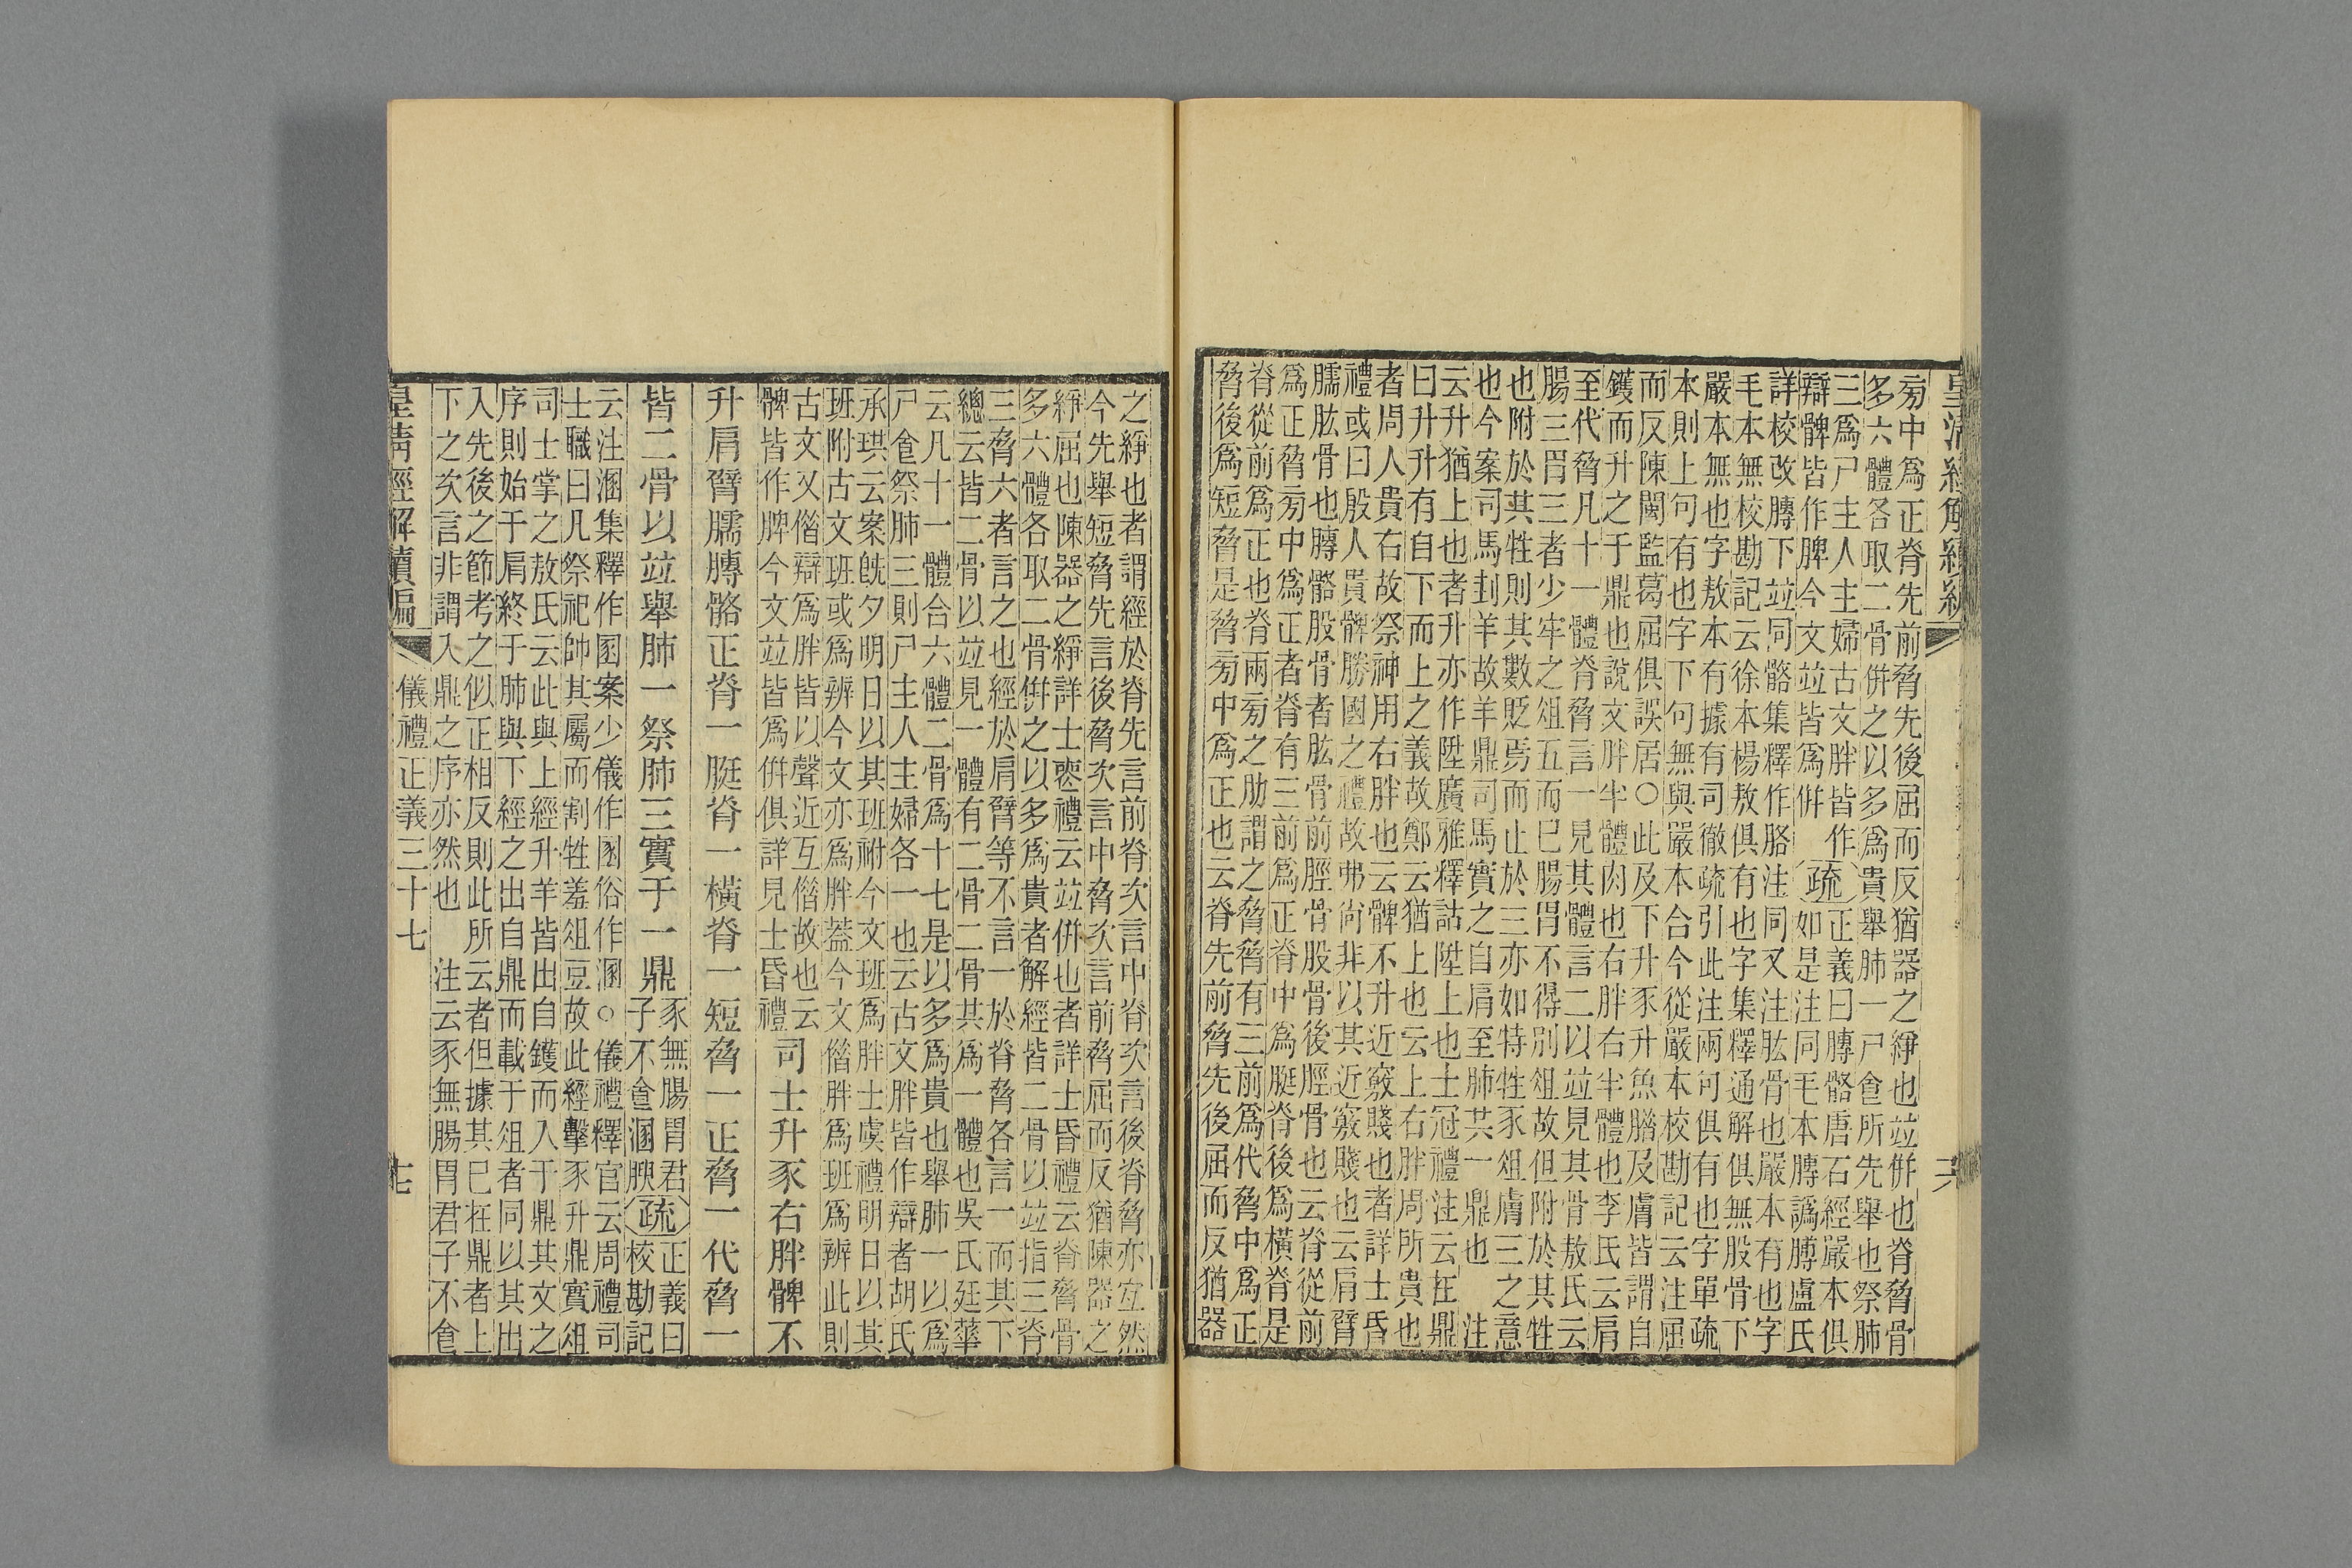 皇清經解續編
六
旁中爲正脊先前脅先後屈而反猶器之綪也竝併也脊脅骨
多六體各取二骨併之以多爲貴舉肺一尸食所先舉也祭肺
三爲尸主人主婦古文胖皆作
辯髀皆作脾今文竝皆爲併
疏
正義曰膊骼唐石經嚴本俱
如是注同毛本膊譌膞盧氏
詳校改膊下竝同骼集釋作胳注同又注肱骨也嚴本有也字
毛本無校勘記云徐本楊敖俱有也字集釋通解俱無股骨下
嚴本無也字敖本有據有司徹疏引此注兩句俱有也字單疏
本則上句有也字下句無與嚴本合今從嚴本校勘記云注屈
而反陳閩監葛屈俱誤居○此及下升豕升魚腊及膚皆謂自
鑊而升之于鼎也說文胖半體肉也右胖右半體也李氏云肩
至代脅凡十一體脊脅言一見其體言二以竝見其骨敖氏云
腸三胃三者少牢之俎五而巳腸胃不得別俎故但附於其牲
也附於其牲則其數貶焉而止於三亦如特牲豕俎膚三之意
也今案司馬刲羊故羊鼎司馬實之自肩至肺共一鼎也 注
云升猶上也者升亦作陞廣雅釋詁陞上也士冠禮注云在鼎
曰升升有自下而上之義故鄭云猶上也云上右胖周所貴也
者周人貴右故祭神用右胖也云髀不升近竅賤也者詳士昏
禮或曰殷人貴髀勝國之禮故弗尚非以其近竅賤也云肩臂
臑肱骨也膊骼股骨者肱骨前脛骨股骨後脛骨也云脊從前
爲正脅旁中爲正者脊有三前爲正脊中爲脡脊後爲橫脊是
脊從前爲正也脊兩旁之肋謂之脅脅有三前爲代脅中爲正
脅後爲短脅是脅旁中爲正也云脊先前脅先後屈而反猶器
之綪也者謂經於脊先言前脊次言中脊次言後脊脅亦宜然
今先舉短脅先言後脅次言中脅次言前脅屈而反猶陳器之
綪屈也陳器之綪詳士喪禮云竝併也者詳士昏禮云脊脅骨
多六體各取二骨併之以多爲貴者解經皆二骨以竝指三脊
三脅六者言之也經於肩臂等不言一於脊脅各言一而其下
總云皆二骨以竝見一體有二骨二骨其爲一體也吳氏廷華
云凡十一體合六體二骨爲十七是以多爲貴也舉肺一以爲
尸食祭肺三則尸主人主婦各一也云古文胖皆作辯者胡氏
承珙云案旣夕明日以其班祔今文班爲胖士虞禮明日以其
班附古文班或爲辨今文亦爲胖葢今文偕胖爲班爲辨此則
古文又偕辯爲胖皆以聲近互偕故也云
髀皆作脾今文竝皆爲併俱詳見士昏禮
司士升豕右胖髀不
升肩臂臑膊骼正脊一脡脊一橫脊一短脅一正脅一代脅一
皆二骨以竝舉肺一祭肺三實于一鼎
豕無腸胃君
子不食溷腴
疏
正義曰
校勘記
云注溷集釋作圂案少儀作圂俗作溷○儀禮釋官云周禮司
士職曰凡祭祀帥其屬而割牲羞俎豆故此經擊豕升鼎實俎
司士掌之敖氏云此與上經升羊皆出自鑊而入于鼎其文之
序則始于肩終于肺與下經之出自鼎而載于俎者同以其出
入先後之節考之似正相反則此所云者但據其巳在鼎者上
下之次言非謂入鼎之序亦然也 注云豕無腸胃君子不食
皇清經解續編
儀禮正義三十七
七